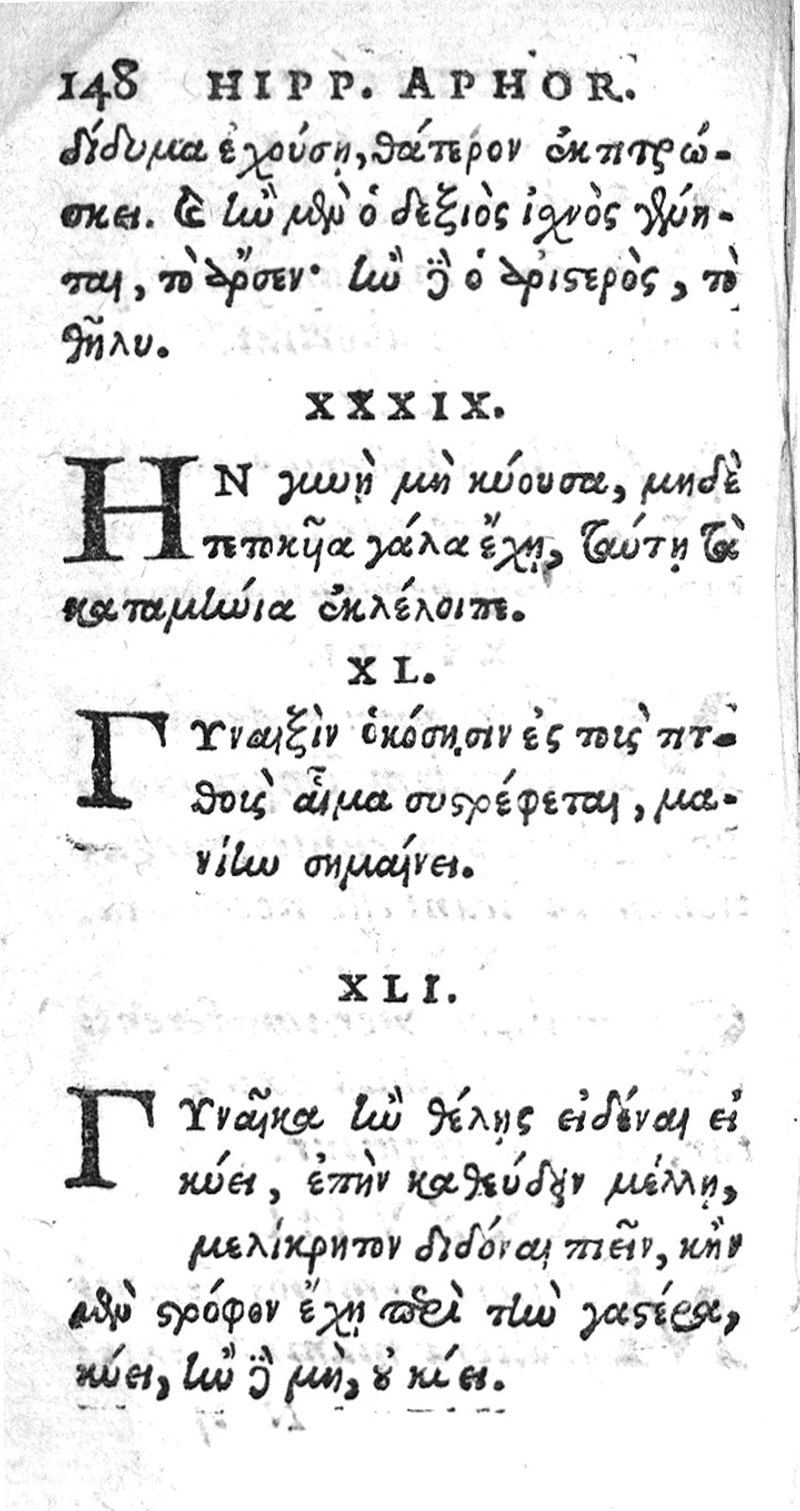 148 HIPP. APHOR.
δίδυμα ἐχούσῃ, θάτερον ἐκτιτρώ-
σκει. Καὶ ἢν μὲν ὁ δεξιὸς ἰχνὸς γένη-
ται, τὸ ἄρσεν· ἢν δὲ ὁ ἀριστερὸς, τὸ
θῆλυ.
XXXIX.
ΗΝ γυνὴ μὴ κύουσα, μηδὲ
τετοκῆα γάλα ἔχῃ, ταύτῃ τὰ
καταμήνια ἐκλέλοιπε.
XL.
ΓΥναιξὶν ὁκόσῃσιν ἐς τοὺς τιτ-
θοὺς αἷμα συστρέφεται, μα-
νίην σημαίνει.
XLI.
ΓΥναῖκα ἢν θέλῃς εἰδέναι εἰ
κύει, ἐπὴν καθεύδειν μέλλῃ,
μελίκρητον διδόναι πιεῖν, κἢν
μὲν στρόφον ἔχῃ περὶ τὴν γαστέρα,
κύει, ἢν δὲ μὴ, οὐ κύει.